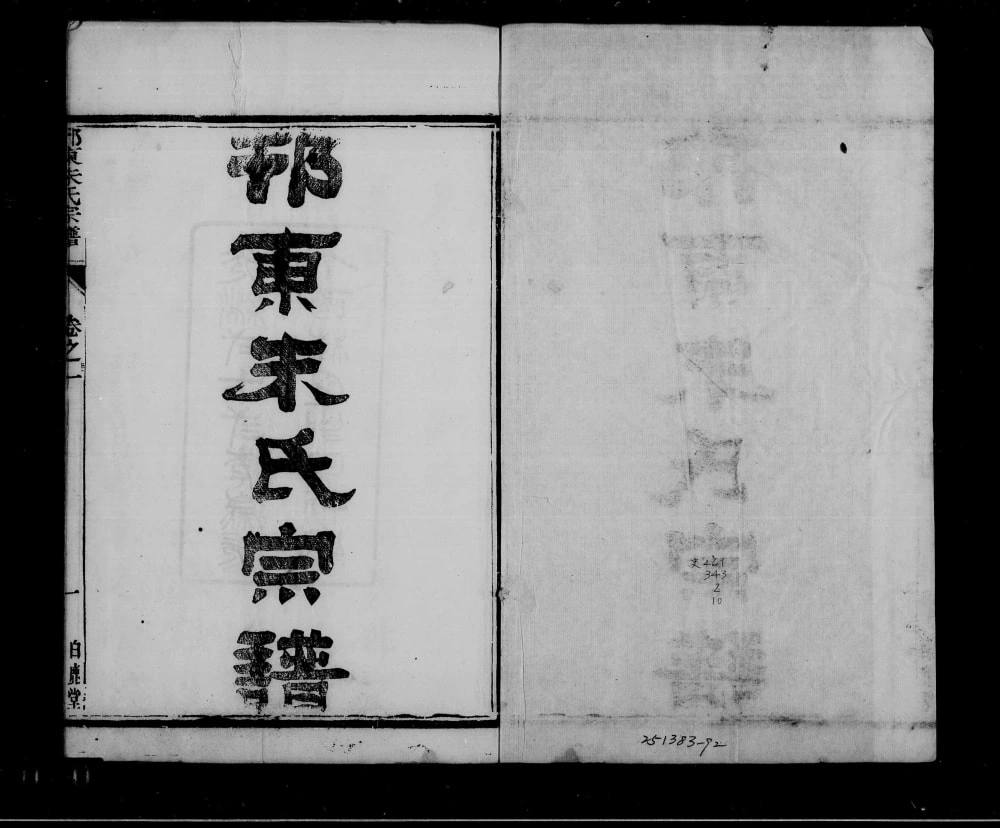 邗東朱氏宗譜
邗東朱氏宗譜
卷之一
一
白鹿堂
史421
343
2
10
251383-92